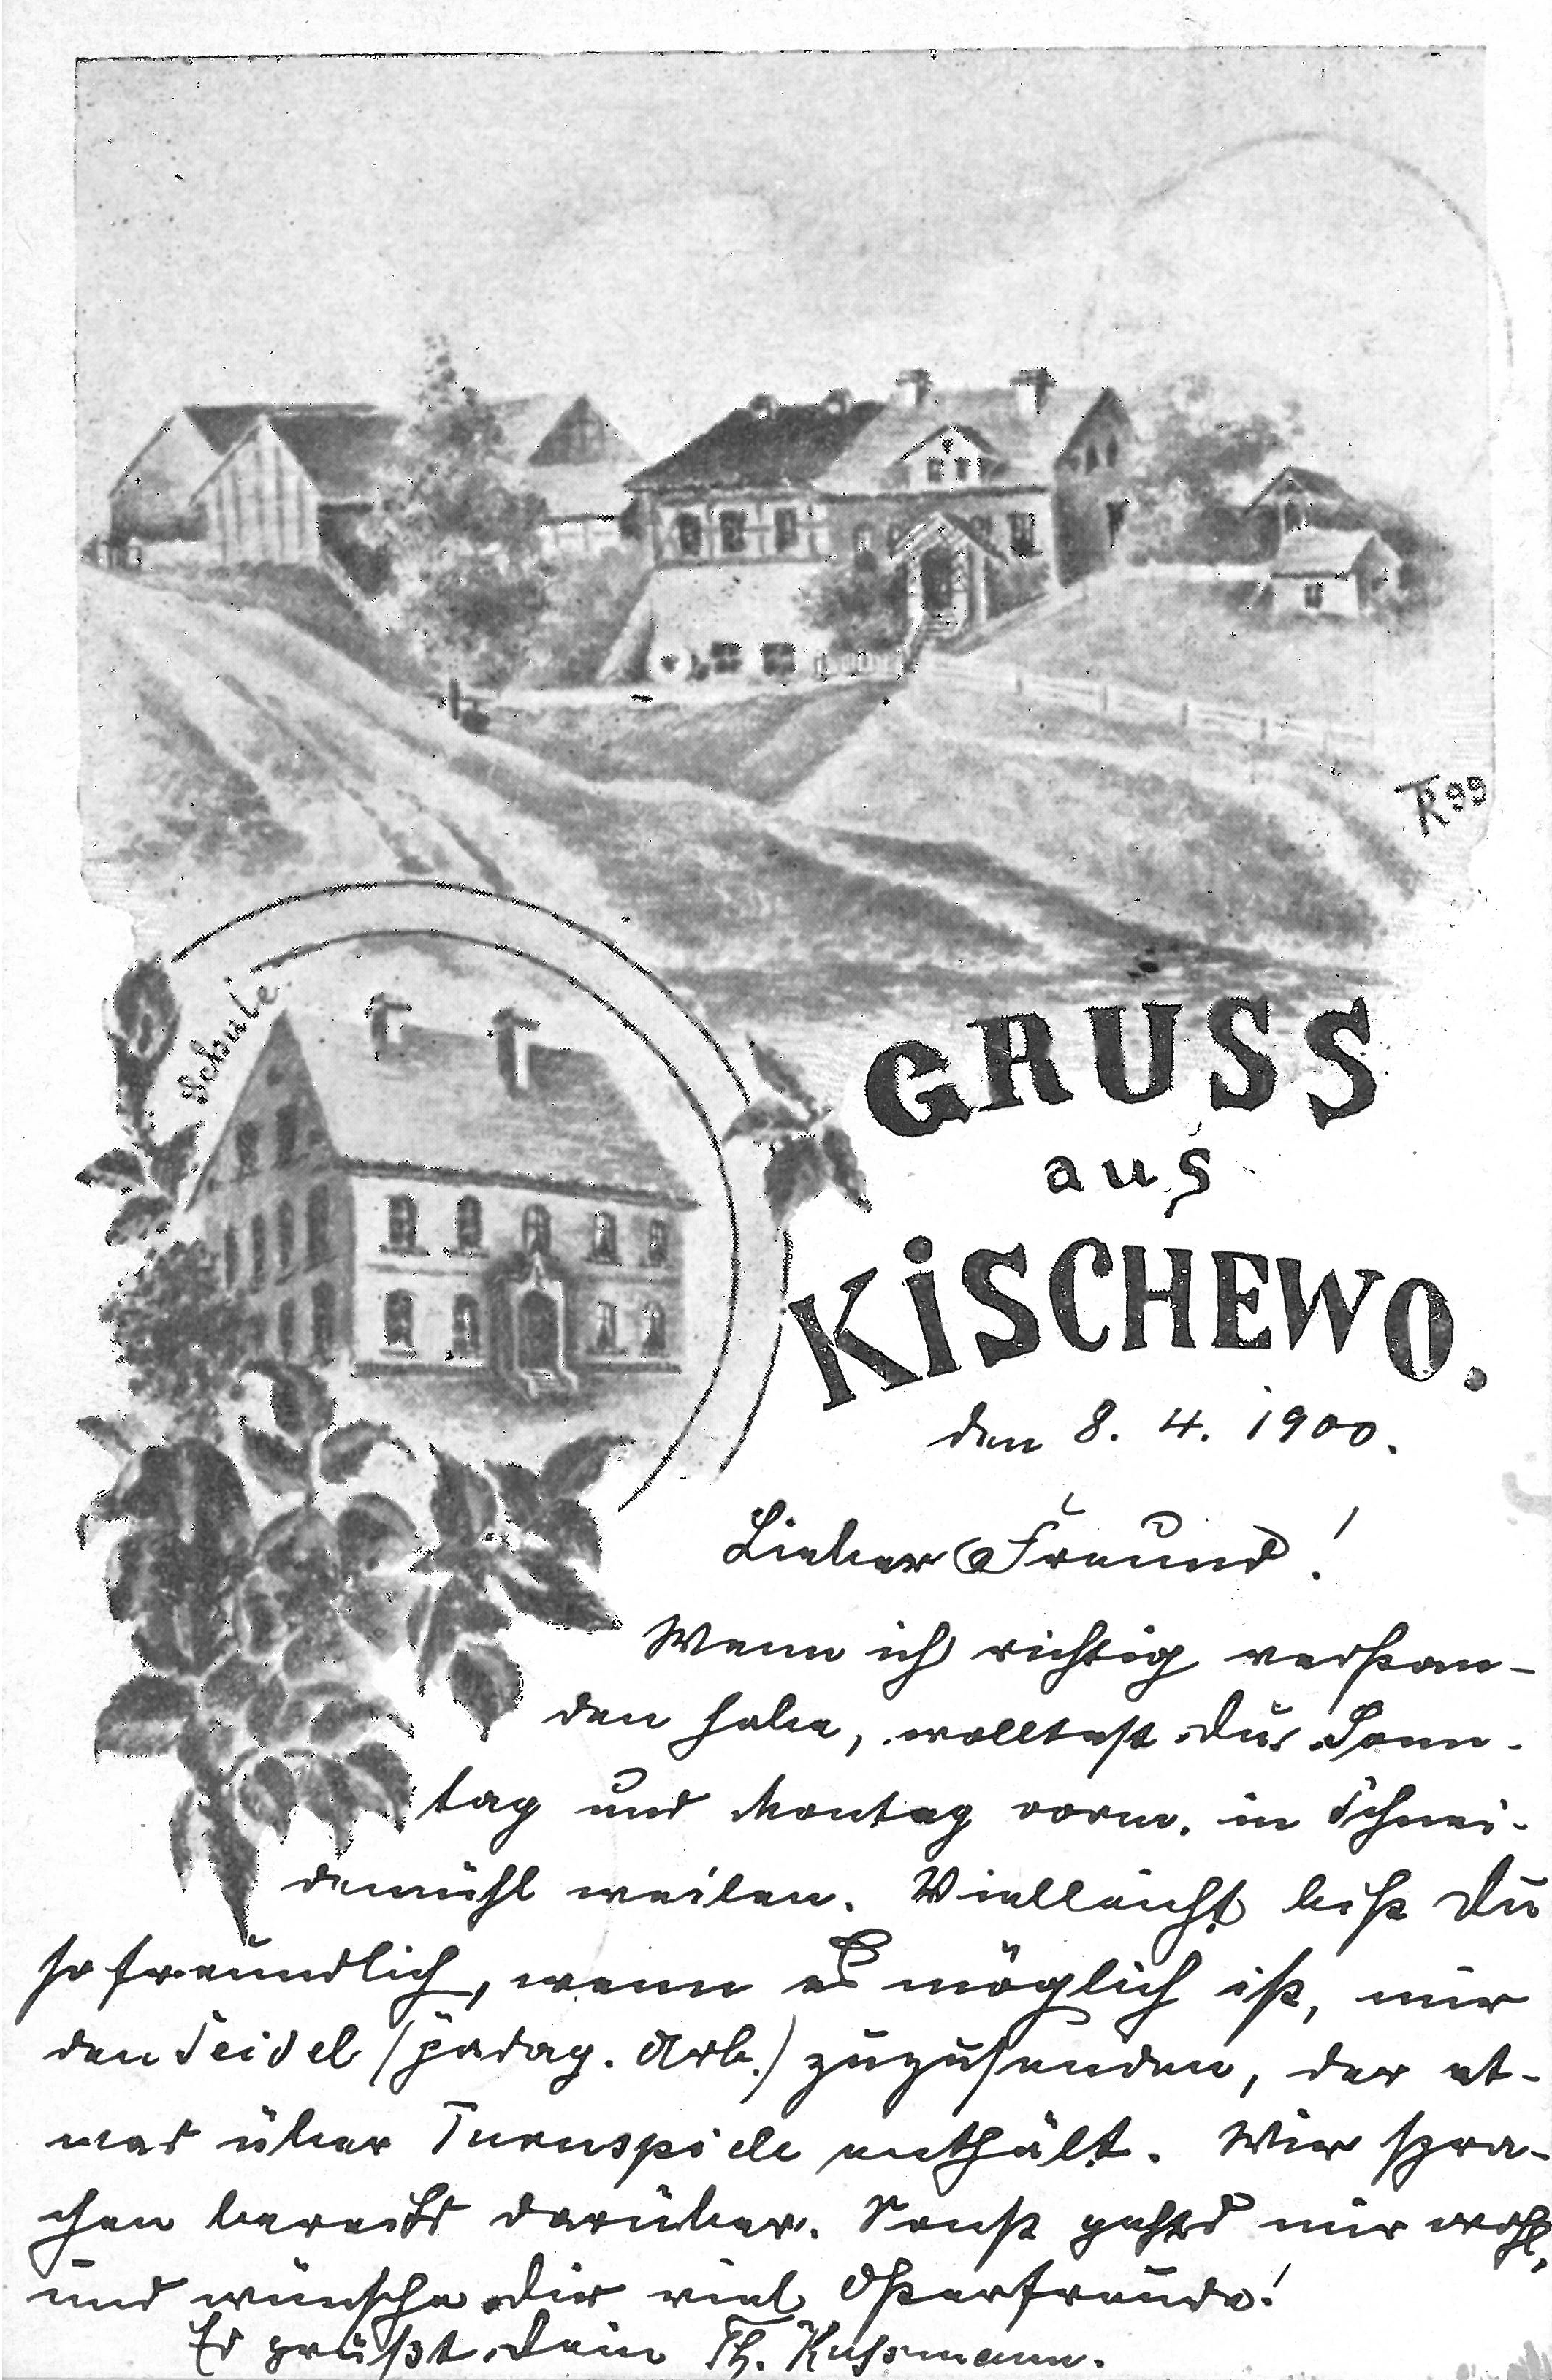 TK 99
Schule.
GRUSS
aus
KiSCHEWO.
den 8. 4. 1900.
Lieber Freund!
Wenn ich richtig verstan-
den habe, wolltest Du Sonn-
tag und Montag vorm. in Schnei-
demühl weilen. Vielleicht bist Du
so freundlich, wenn es möglich ist, mir
den Seidel (pädag. Arb.) zuzusenden, der et-
was über Turnspiele enthält. Wir spra-
chen bereits darüber. Sonst gehts mir wohl,
und wünsche Dir viel Osterfreude!
Es grüßt Dein Th. Kussmann.